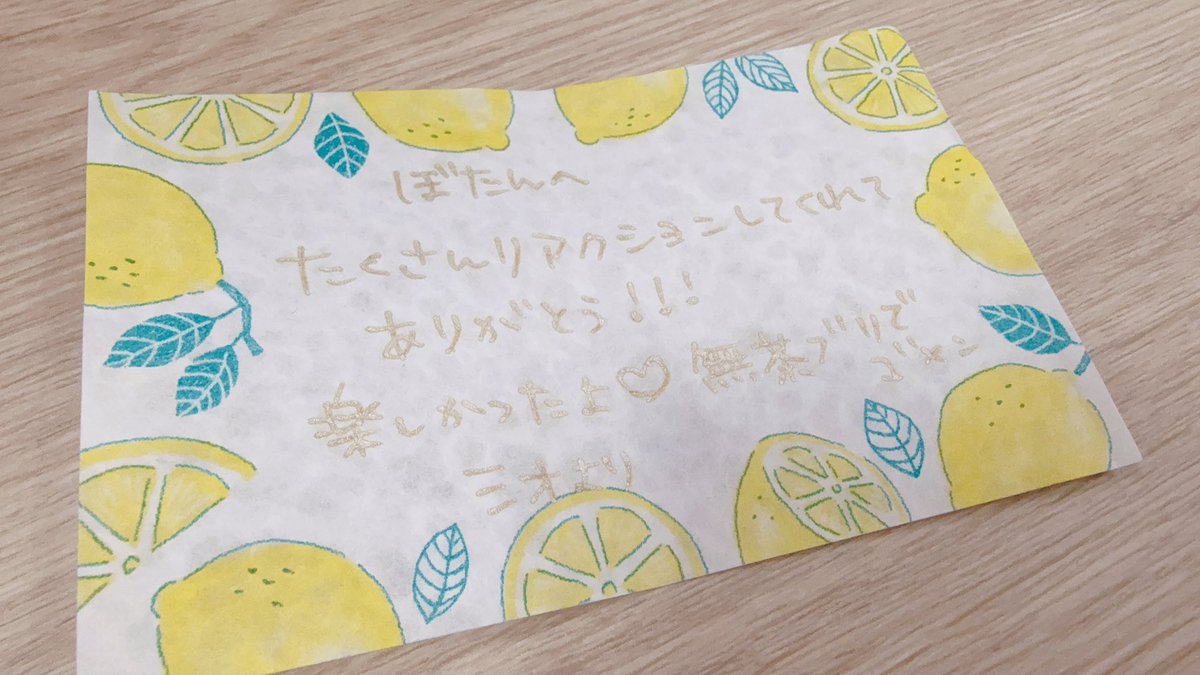 ぼたんへ
たくさんリアクションしてくれて
ありがとう!!!
楽しかったよ♡無茶ブリでごめん
ミオより